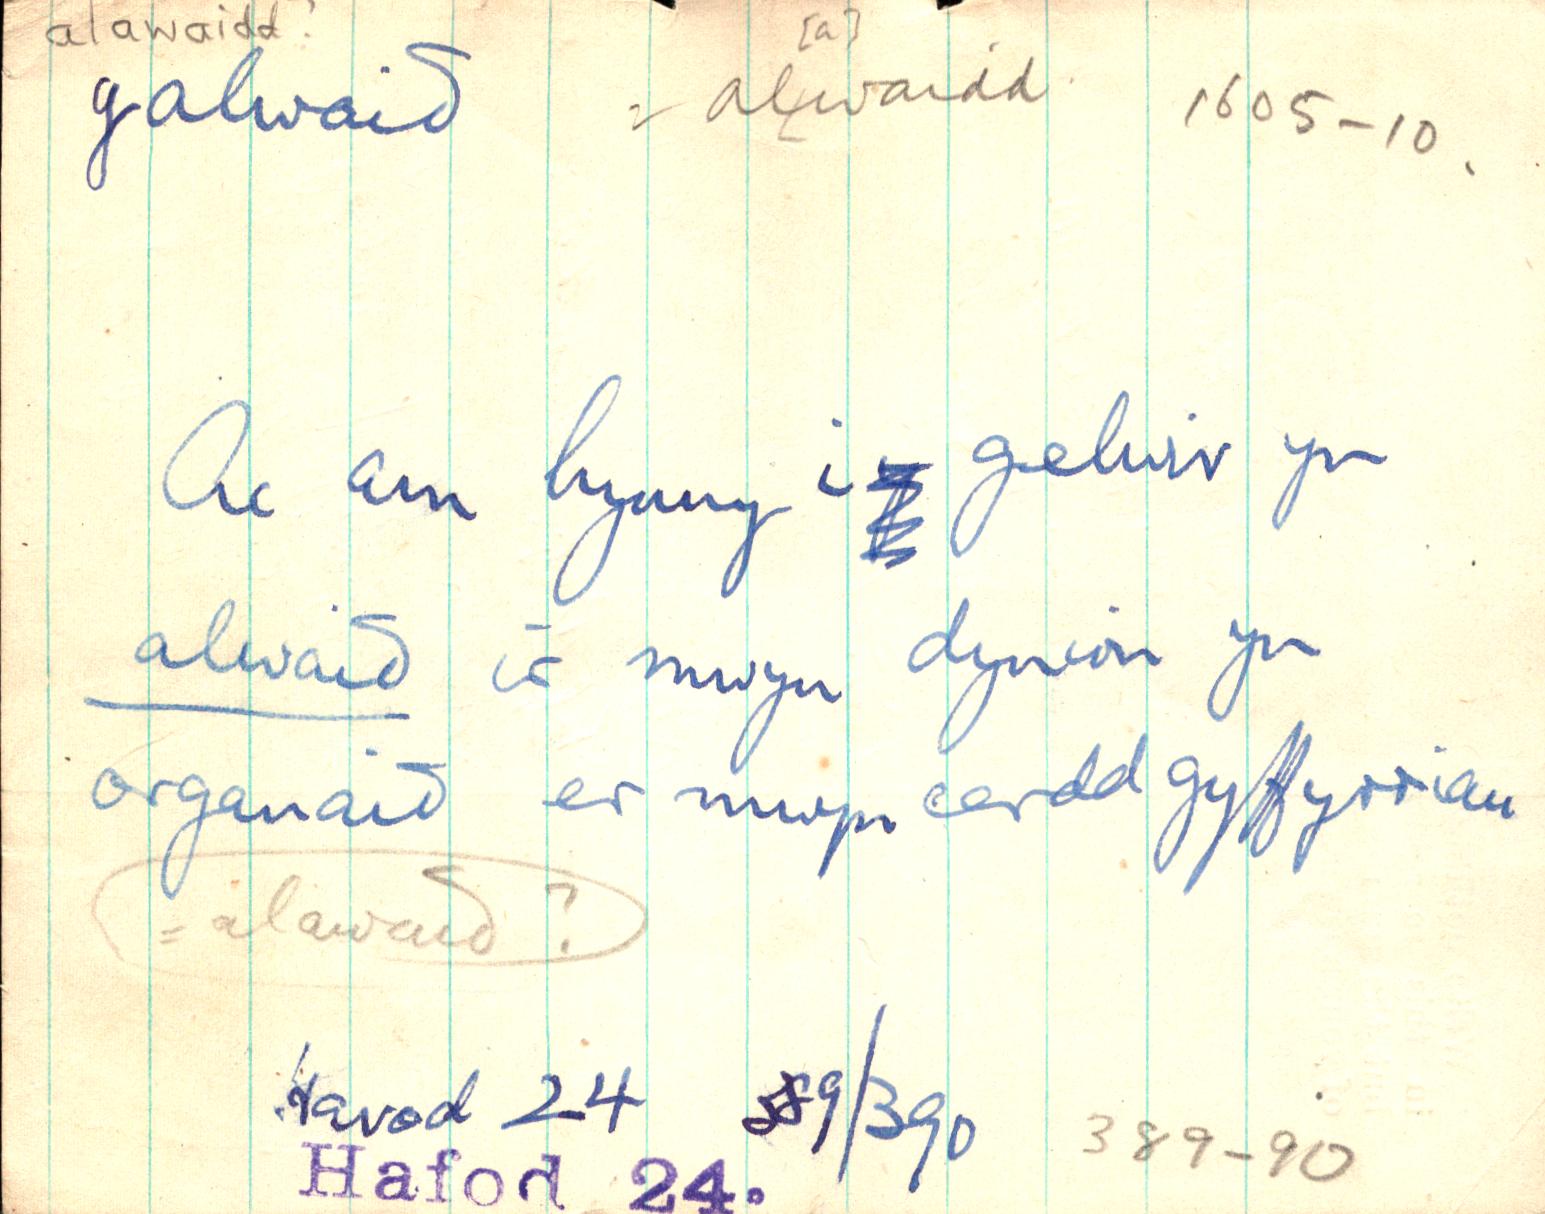 alawaidd?
galwaið = al[a]waidd 1605-10.
Ac am hynny i gelwir yn
alwaið ir mwyn dynion yn
organaið er mwyn cerdd gyffyrriau
= alawaið?
Havod 24 389/390 389-90
Hafod 24.